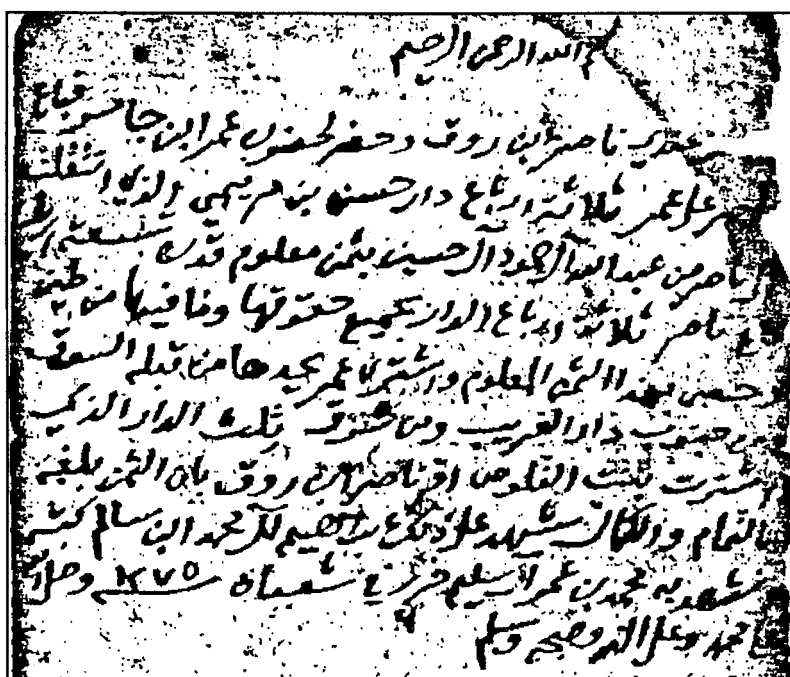 بسم الله الرحمن الرحيم
حضر عندي ناصر ابن روق وحضر لحضوره عمر ابن جاسر فباع
ناصر على عمر ثلاثة ارباع دار حسن بن مريمي الذي انتقلت
الى ناصر من عبدالله آل حسين بثمن معلوم قدره
باع ناصر ثلاثة ارباع الدار بجميع حقوقها وما فيها من طين
وخشب بهذا الثمن المعلوم واشترى عمر يحدها من قبله السوق
ومن جنوب دار الغريب ومن شرق ثلث الدار الذي
اشترت بنت اقر ناصر ابن روق بان الثمن بلغه
بالتمام والكمال شهد على ذلك ابراهيم محمد ابن سالم كتبه
وشهد به محمد بن عمر ال سليم في شعبان ١٢٧٥ وصلى الله
على محمد وعلى اله وصحبه وسلم